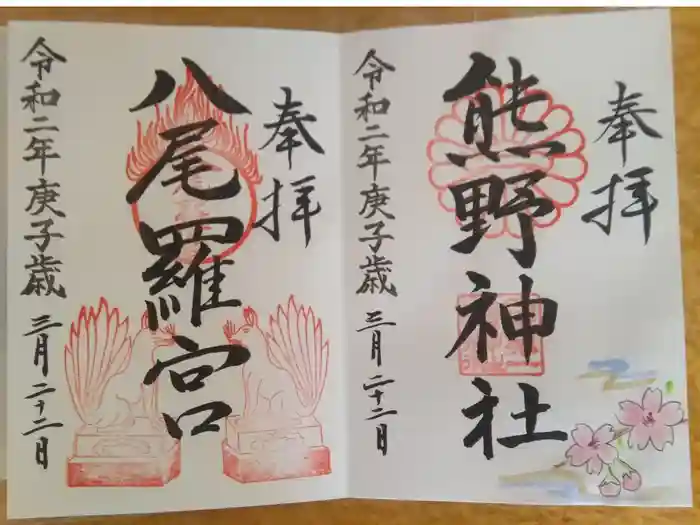 奉拝
熊野神社
令和二年庚子歳 三月二十二日
奉拝
八尾羅宮
令和二年庚子歳 三月二十二日